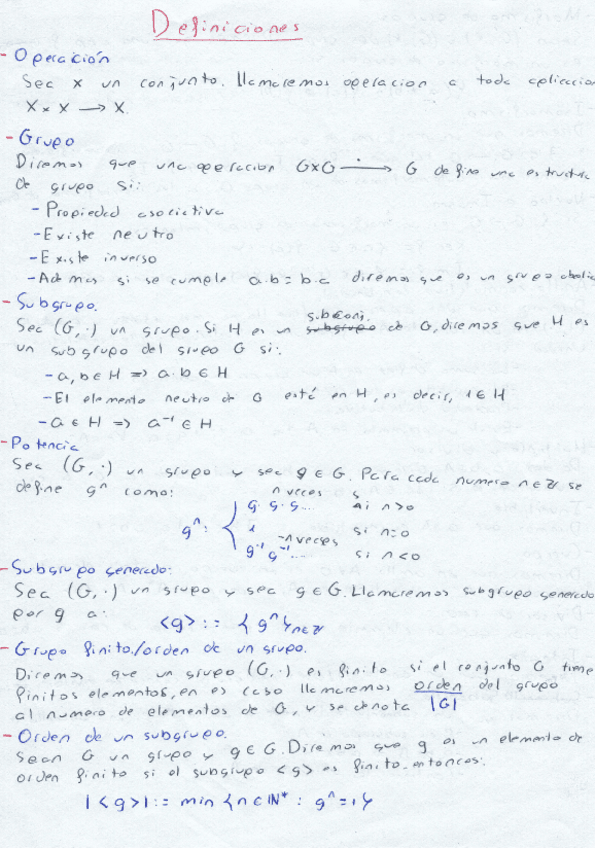 Definiciones
- Operación
Sea X un conjunto. Llamaremos operacion a toda aplicacion
X x X → X.
- Grupo
Diremos que una operacion GxG → G define una estructura
de grupo si:
- Propiedad asociativa
- Existe neutro
- Existe inverso
- Ademas si se cumple a.b = b.a diremos que es un grupo abelia
- Subgrupo.
subconj.
Sea (G,·) un grupo. Si H es un subgrupo de G, diremos que H es
un subgrupo del grupo G si:
- a, b ∈ H => a·b ∈ H
- El elemento neutro de G está en H, es decir, 1 ∈ H
- a ∈ H => a⁻¹ ∈ H
- Potencia
Sea (G,·) un grupo y sea g ∈ G. Para cada numero n ∈ ℤ se
define gⁿ como:
n veces
g· g· g... si n>0
gⁿ: { 1 si n=0
-n veces
g⁻¹ g⁻¹.... si n<0
- Subgrupo generado:
Sea (G,·) un grupo y sea g ∈ G. Llamaremos subgrupo generado
por g a: <g> := {gⁿ}n∈ℤ
- Grupo finito/orden de un grupo.
Diremos que un grupo (G,·) es finito si el conjunto G tiene
finitos elementos, en es caso llamaremos orden del grupo
al numero de elementos de G, y se denota |G|
- Orden de un subgrupo.
Sean G un grupo y g ∈ G. Diremos que g es un elemento de
orden finito si el subgrupo <g> es finito. entonces:
|<g>| := min {n ∈ ℕ* : gⁿ = 1}